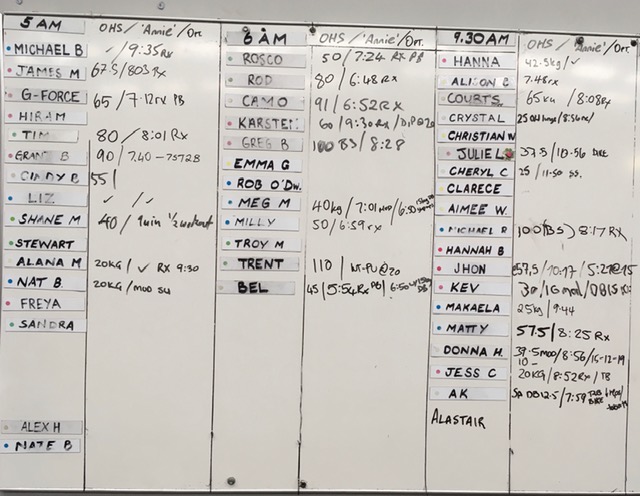 5 AM OHS / 'Annie' / Ort.
MICHAEL B ✓ / 9:35 Rx
JAMES M 67.5 / 803 Rx
G-FORCE 65 / 7.12rx PB
HIRAM
TIM 80 / 8:01 Rx
GRANT B 90 / 7.40 -
CINDY B 55 /
LIZ ✓ / ✓ /
SHANE M 40 / 9min 1/2 workout
STEWART
ALANA M 20KG / ✓ RX 9:30
NAT B 20KG / mod su
FREYA
SANDRA
ALEX H
NATE B
6 AM OHS / 'Annie' / Ort.
ROSCO 50 / 7:24 RX PB
ROD 80 / 6:48 Rx
CAMO 91 / 6:52 Rx
KARSTEN 60 / 9:30 Rx /
GREG B 83 / 8:28
EMMA G
ROB O'DW.
MEG M 40kg / 7:01 / 6:50
MILLY 50 / 6:59 rx
TROY M
TRENT 110 /
BEL 45 / 5:54 Rx PB / 6:50
9.30 AM OHS / 'Annie' / Ort.
HANNA 42.5kg / ✓
ALISON C 7.48 rx
COURTS 65KG / 8:08 Rx
CRYSTAL 25
CHRISTIAN W
JULIE L 37.5 / 10.56
CHERYL C 25 / 11.50 SS.
CLARECE
AIMEE W.
MICHAEL R 100 (BS) 8:17 RX
HANNAH B
JHON 57.5 / 10:17 / 5:27 @ 15
KEV 30 / 16 mod / DB15
MAKAELA 25kg / 9.44
MATTY 57.5 / 8:25 Rx
DONNA H. 37.5 mod / 8:56 / 16-12-19
10-
JESS C 20KG / 8:52 Rx / TB
AK DB 12.5 / 7:59
ALASTAIR